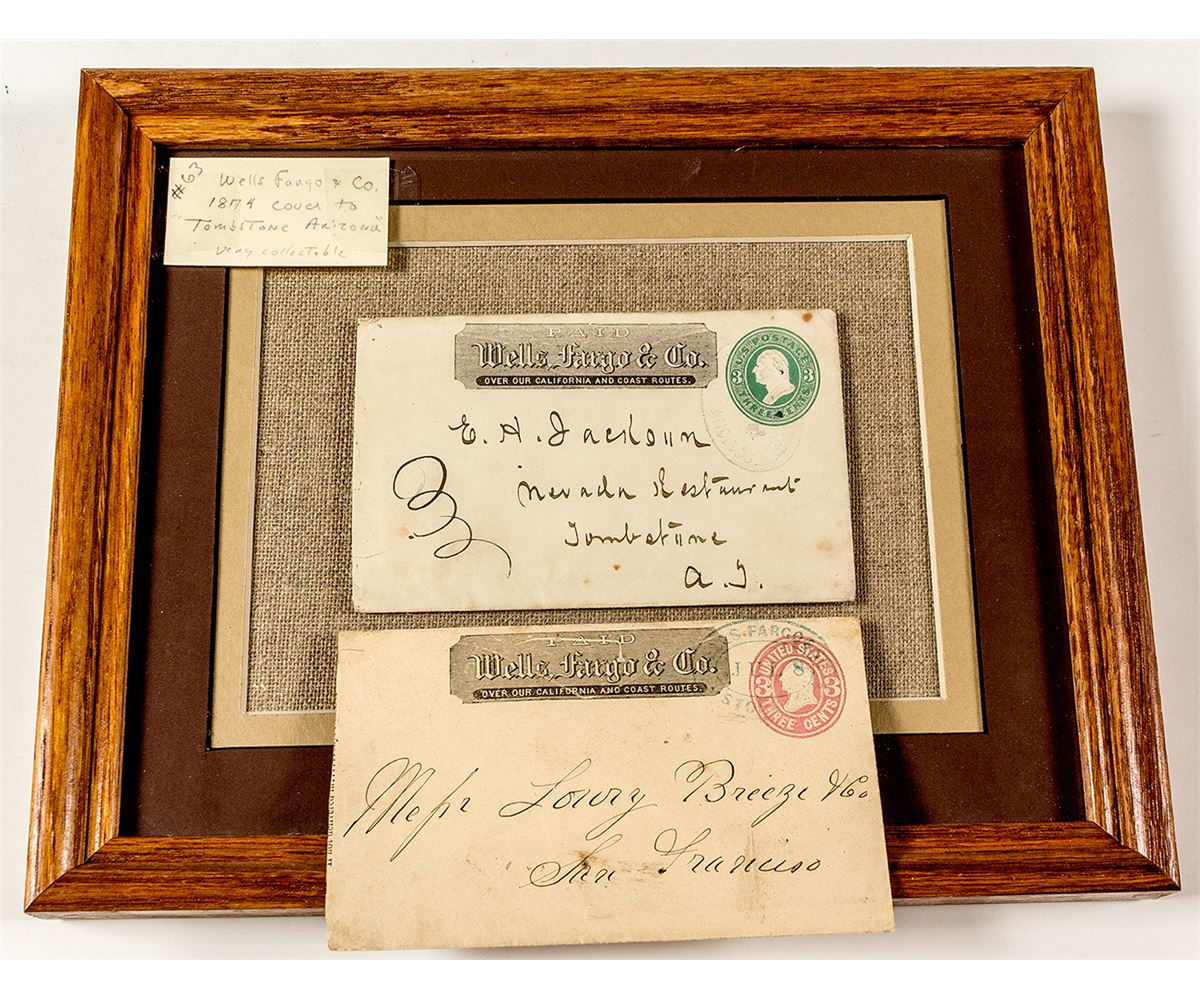 #63
Wells Fargo & Co.
1874 cover to
"Tombstone Arizona"
very collectable
PAID
Wells, Fargo & Co.
OVER OUR CALIFORNIA AND COAST ROUTES.
U.S. POSTAGE
3 3
THREE CENTS
E. H. Jackson
Nevada Restaurant
Tombstone
A.T.
PAID
Wells, Fargo & Co.
OVER OUR CALIFORNIA AND COAST ROUTES.
S. FARGO
8
STO
UNITED STATES
3 3
THREE CENTS
Messr Lowry Breeze & Co
San Francisco